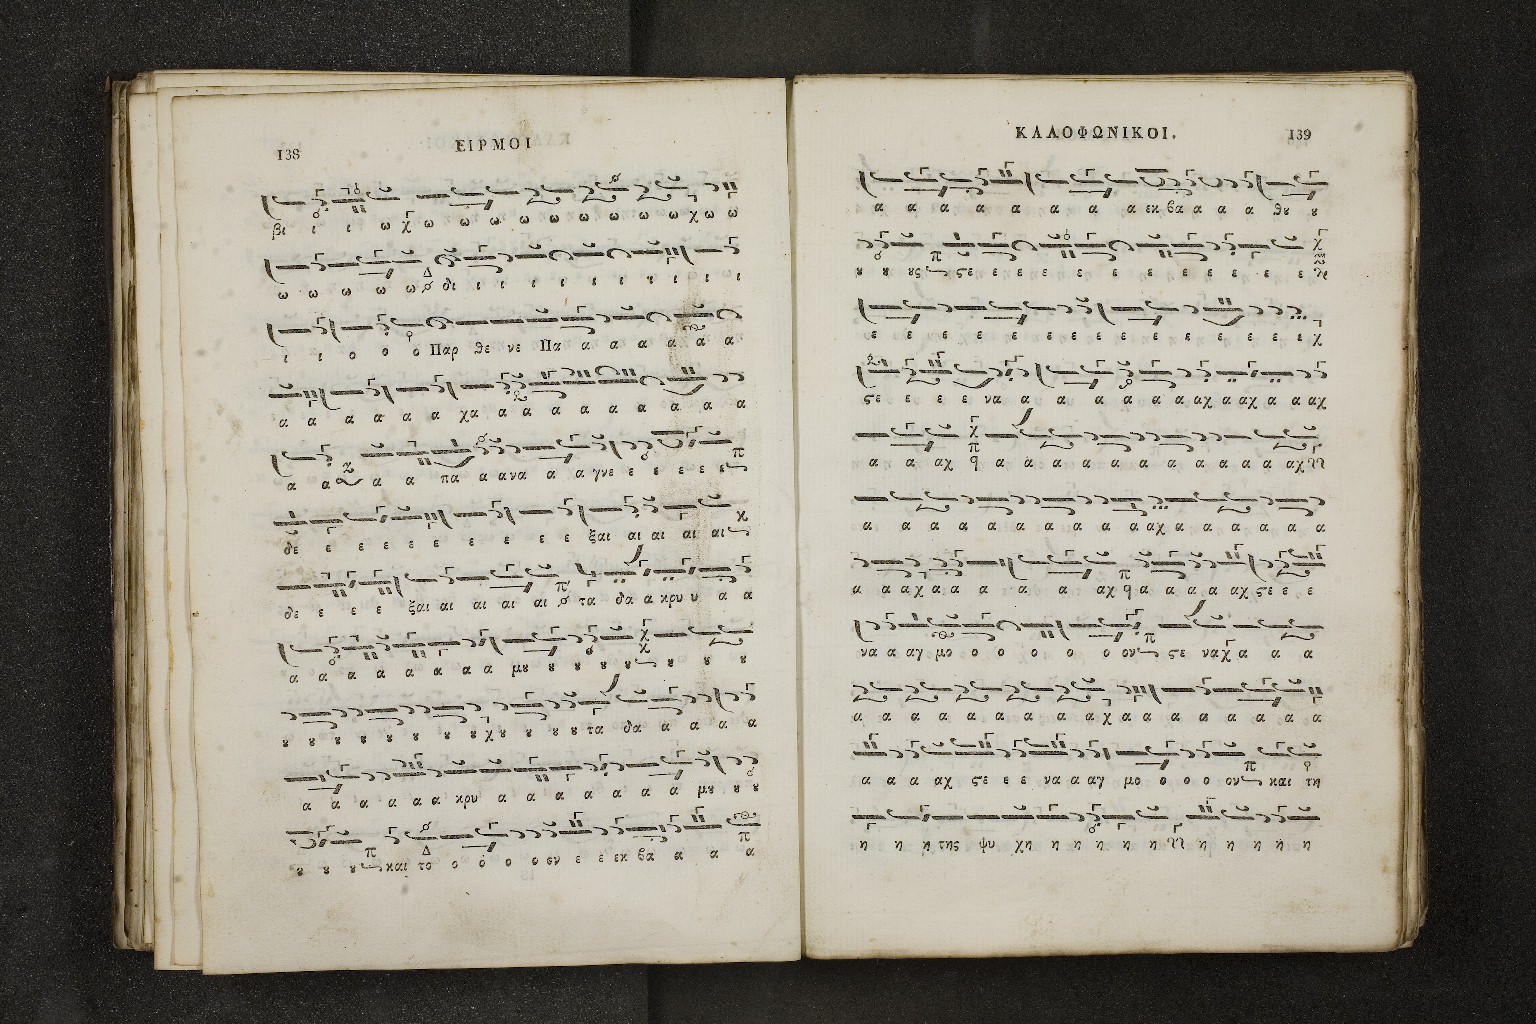 138
ΕΙΡΜΟΙ
βι ι ι ω χ ω ω ω ω ω ω ω ω ω χ ω ω
ω ω ω ω ω δι ι ι ι ι ι ι ι ι ι
ι ι ο ο ο Παρ θε νε Πα α α α α α α
α α α α α α χα α α α α α α α α α
α α α α πα α ανα α α γνε ε ε ε ε ε
δε ε ε ε ε ε ε ε ε ε ξαι αι αι αι αι
δε ε ε ε ξαι αι αι αι αι τα δα α κρυ υ α α
α α α α α α α α μȣ ȣ ȣ ȣ ȣ ȣ ȣ ȣ
ȣ ȣ ȣ ȣ ȣ ȣ ȣ ȣ χ ȣ ȣ ȣ ȣ τα δα α α α α
α α α α α α κρυ α α α α α α α μȣ ȣ ȣ
ȣ ȣ ȣ και το ο ο ο ο ον ε ε εκ βα α α α
ΚΑΛΟΦΩΝΙΚΟΙ.
139
α α α α α α α α α εκ βα α α α θȣ ȣ
ȣ ȣ ȣς ςε ε ε ε ε ε ε ε ε ε ε ε ε
ε ε ε ε ε ε ε ε ε ε ε ε ε ε χ
ςε ε ε ε να α α α α α α αχ α αχ α α αχ
α α αχ α α α α α α α α α α α αχ
α α α α α α α α α α αχ α α α α α α
α α αχ α α α α α α αχ α α α α αχ ςε ε ε
να α αγ μο ο ο ο ο ο ον ςε να χ α α α
α α α α α α α α α χ α α α α α α α α
α α α αχ ςε ε ε να α αγ μο ο ο ο ον και τη
η η η της ψυ χη η η η η η η η η η